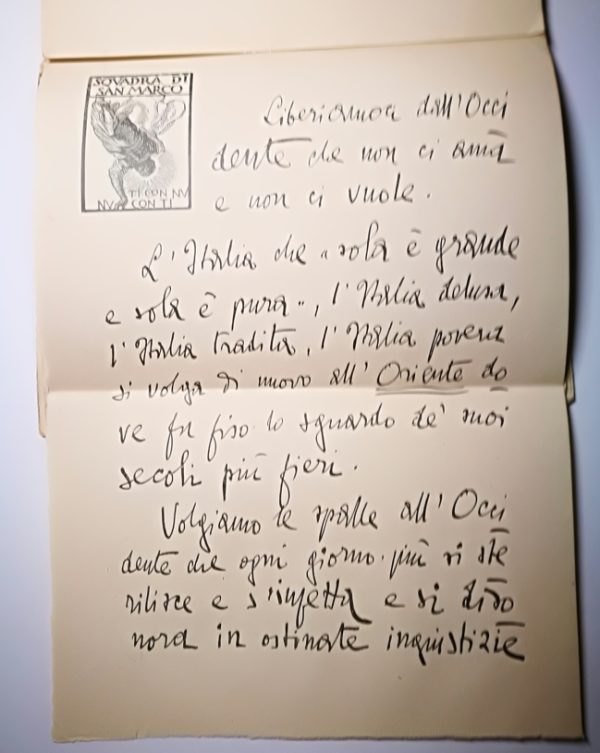 SQVADRA DI
SAN MARCO
TI CON NV
NV CON TI
Liberiamoci dall'Occi
dente che non ci ama
e non ci vuole.
L'Italia che "sola è grande
e sola è pura", l'Italia delusa,
l'Italia tradita, l'Italia povera
si volga di nuovo all'Oriente do
ve fu fiso lo sguardo de' suoi
secoli più fieri.
Volgiamo le spalle all'Occi
dente che ogni giorno più si ste
rilisce e s'infetta e si diso
nora in ostinate inguistizie